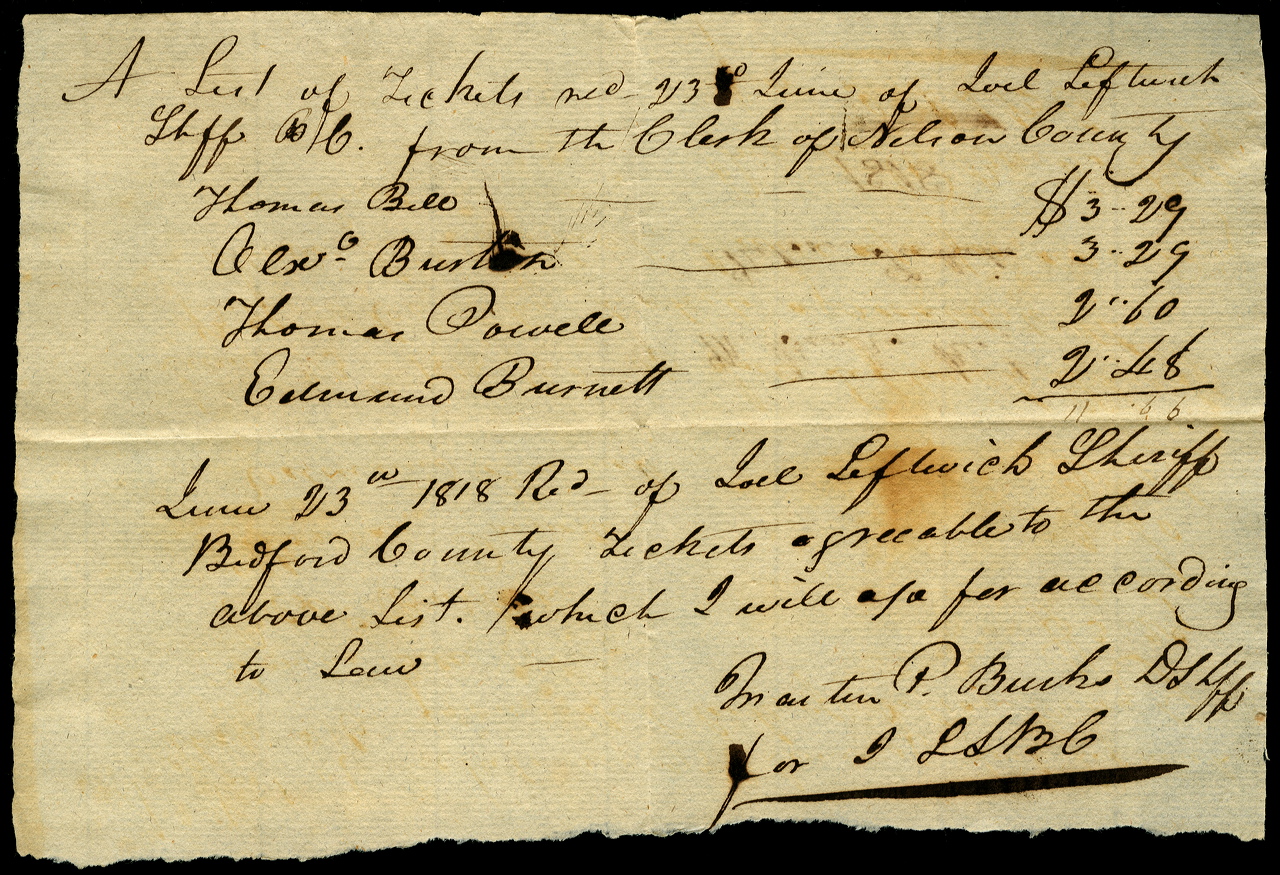 A List of Tickets recd 23d June of Joel Leftwich
Shff B C. from the Clerk of Nelson County
Thomas Bell $ 3--29
Alexr Burton 3--29
Thomas Powell 2--60
Edmund Burnett 2--48
11 66
June 23rd 1818 Recd of Joel Leftwich Sheriff
Bedford County Tickets agreeable to the
above List. which I will a/c for according
to Law
Martin P. Burks DShff
for J L S B C